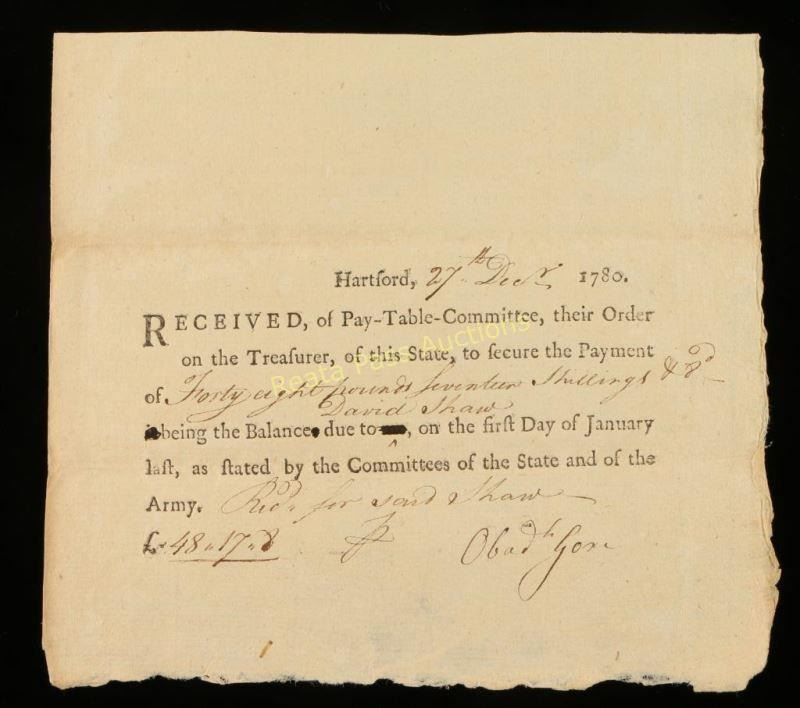 Hartford, 27th Decr. 1780.
RECEIVED, of Pay-Table-Committee, their Order
on the Treaſurer, of this State, to ſecure the Payment
of Forty eight pounds ſeventeen Shillings & 8d
David Shaw
being the Balance due to, on the firſt Day of January
laſt, as ſtated by the Committees of the State and of the
Army. Recd. for said Shaw
£ 48 " 17 " 8
Obadh Gore
Reata Pass Auctions